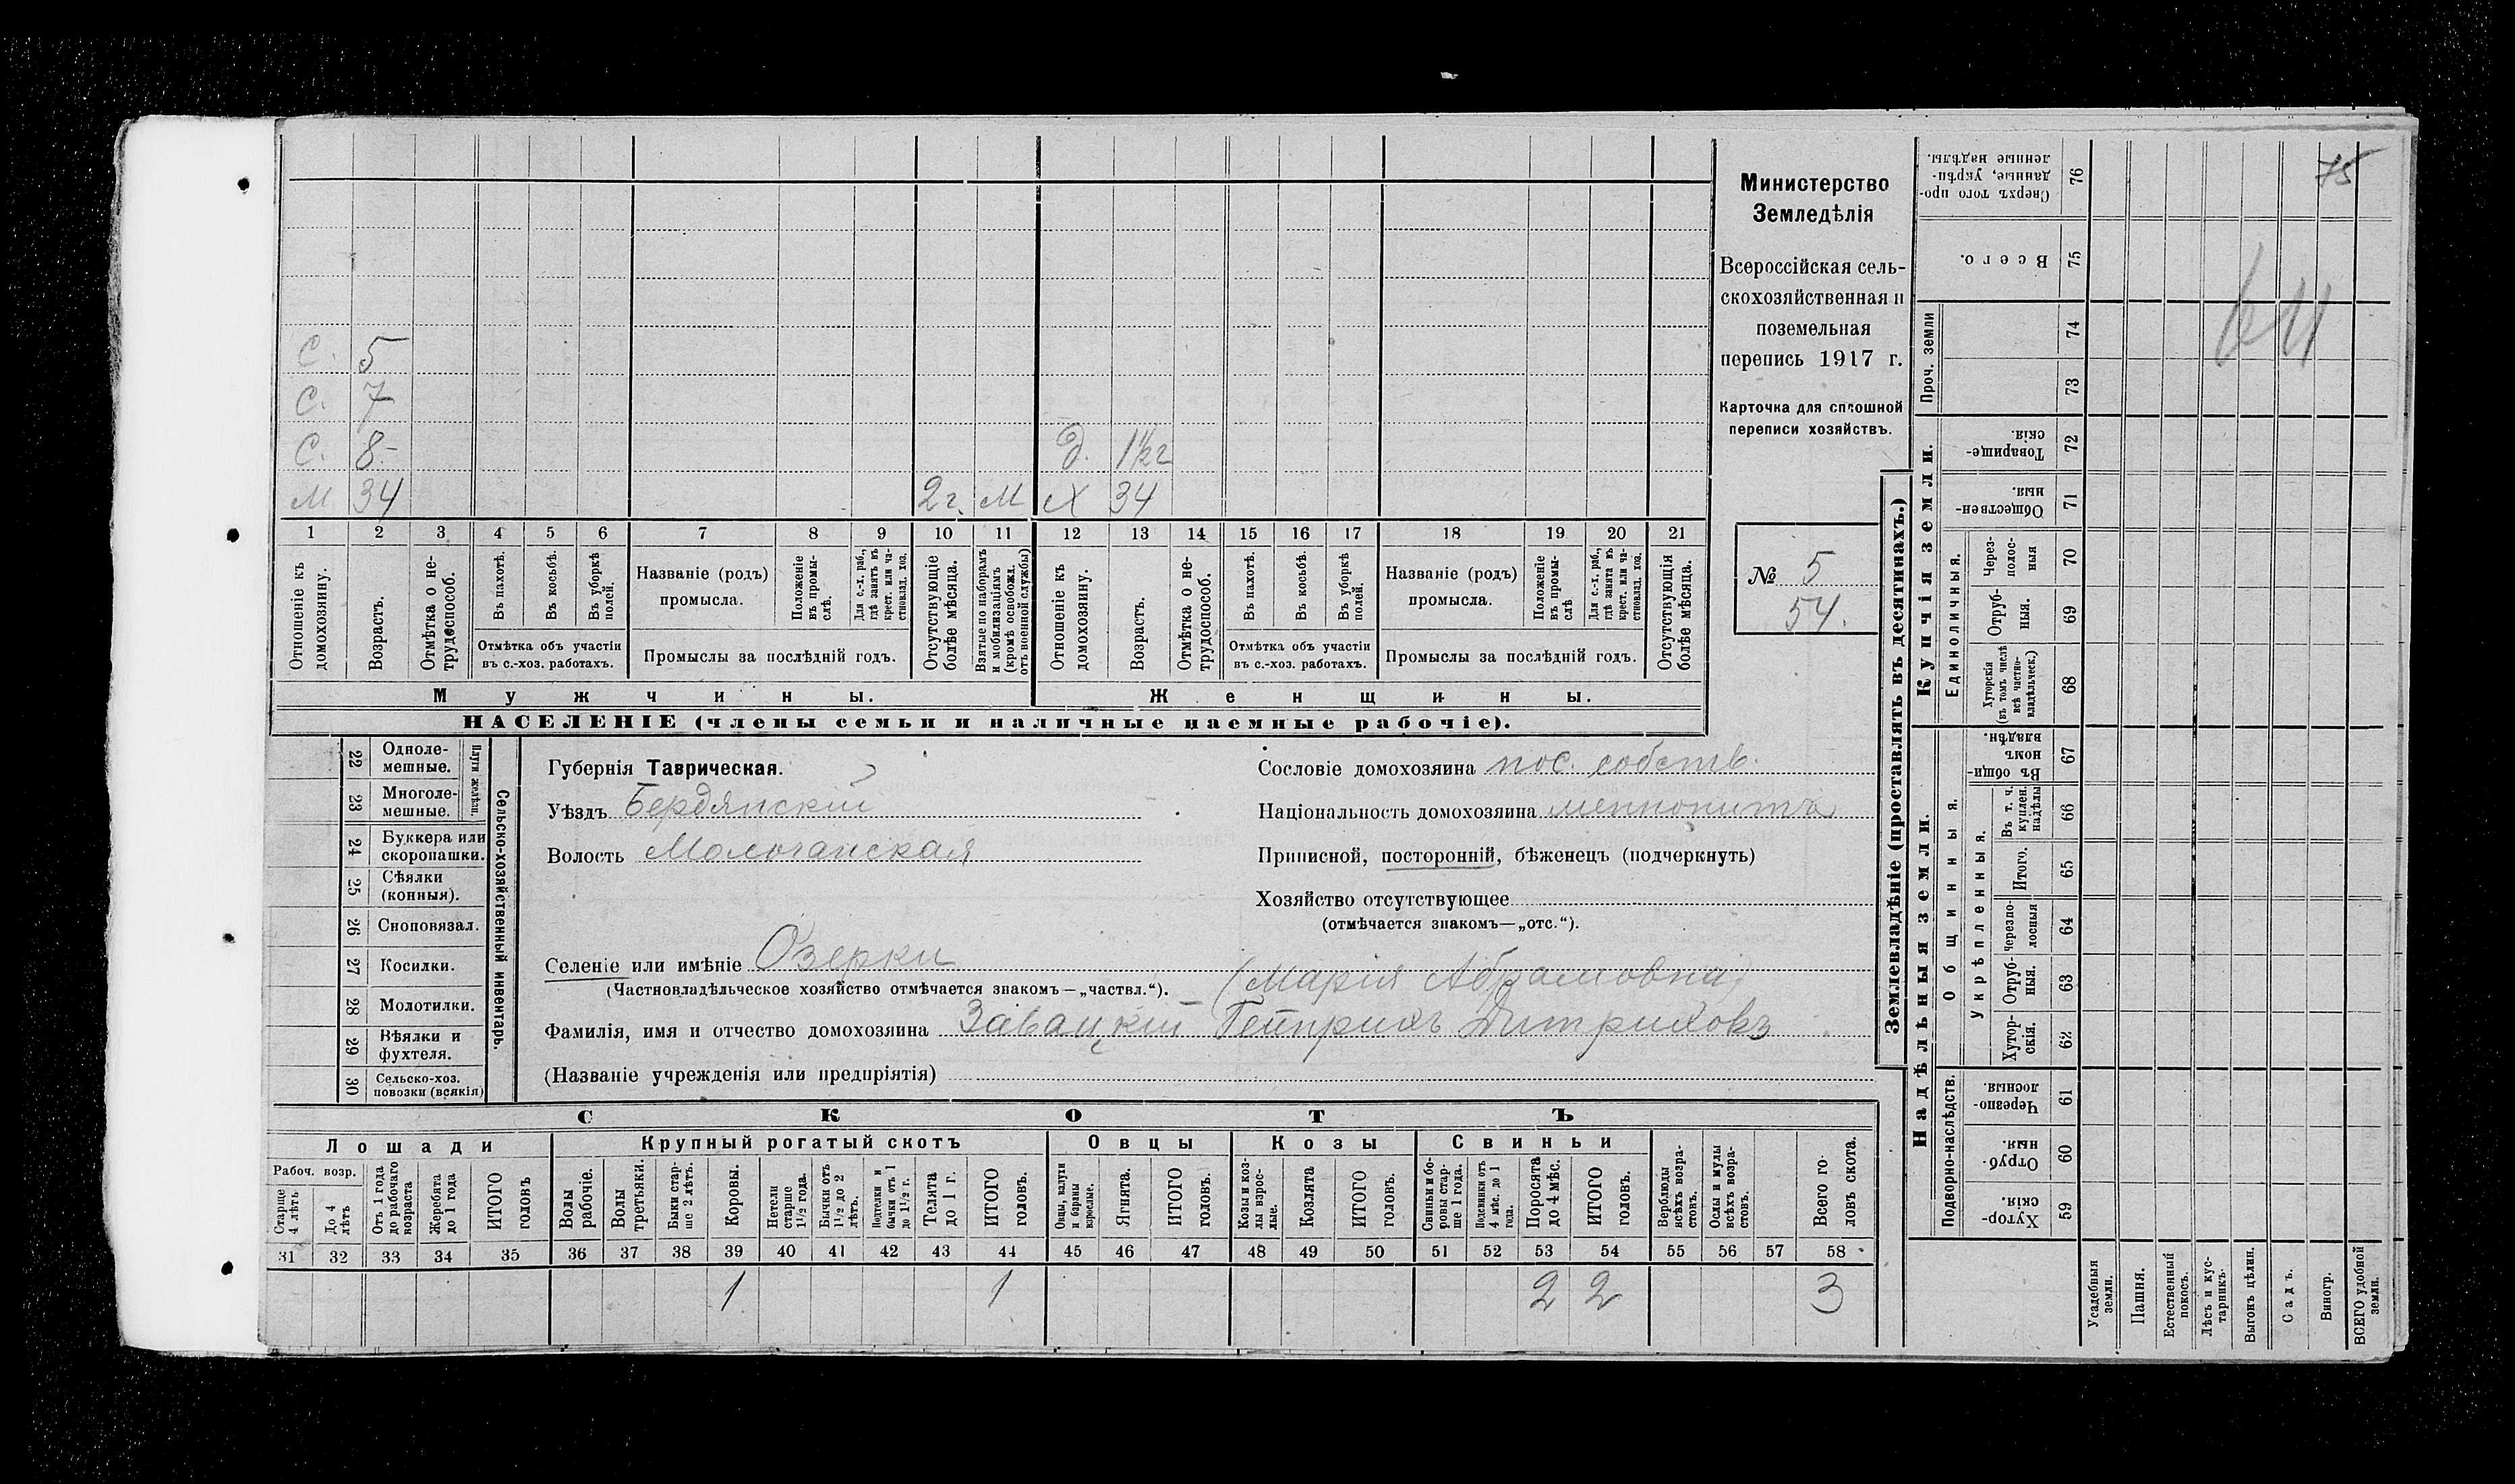 75
64
С. 5
С. 7
С. 8 Д. 1½ г
М 34 2 г. М Х 34
1 2 3 4 5 6 7 8 9 10 11 12 13 14 15 16 17 18 19 20 21
Отношеніе къ домохозяину.
Возрастъ.
Отмѣтка о нетрудоспособ.
Въ пахотѣ.
Въ косьбѣ.
Въ уборкѣ полей.
Отмѣтка объ участіи
въ с.-хоз. работахъ.
Названіе (родъ)
промысла.
Положеніе въ промыслѣ.
Для с.-х. раб., гдѣ занятъ въ крест. или частновлад. хоз.
Промыслы за послѣдній годъ.
Отсутствующіе болѣе мѣсяца.
Взятые по наборамъ и мобилизаціямъ (кромѣ освобожд. отъ военной службы)
Отношеніе къ домохозяину.
Возрастъ.
Отмѣтка о нетрудоспособ.
Въ пахотѣ.
Въ косьбѣ.
Въ уборкѣ полей.
Отмѣтка объ участіи
въ с.-хоз. работахъ.
Названіе (родъ)
промысла.
Положеніе въ промыслѣ
Для с.-х. раб., гдѣ занята въ крест. или частновлад. хоз.
Промыслы за послѣдній годъ.
Отсутствующія болѣе мѣсяца.
Мужчины.
Женщины.
НАСЕЛЕНІЕ (члены семьи и наличные наемные рабочіе).
Министерство
Земледѣлія
Всероссійская сель-
скохозяйственная и
поземельная
перепись 1917 г.
Карточка для сплошной
переписи хозяйствъ.
№ 5
54.
22 Одноле-
мешные.
23 Многоле-
мешные.
Плуги желѣзн.
24 Буккера или
скоропашки.
25 Сѣялки
(конныя).
26 Сноповязал.
27 Косилки.
28 Молотилки.
29 Вѣялки и
фухтеля.
30 Сельско-хоз.
повозки (всякія)
Сельско-хозяйственный инвентарь.
Губернія Таврическая.
Уѣздъ Бердянскій
Волость Молочанская
Сословіе домохозяина пос. собств.
Національность домохозяина меннонитъ
Приписной, посторонній, бѣженецъ (подчеркнуть)
Хозяйство отсутствующее
(отмѣчается знакомъ—„отс.“).
Селеніе или имѣніе Озерки
(Частновладѣльческое хозяйство отмѣчается знакомъ—„частвл.“).
(Марія Абрамовна)
Фамилія, имя и отчество домохозяина Завацкій Гейнрихъ Дитриховъ
(Названіе учрежденія или предпріятія)
СКОТЪ
Лошади
Крупный рогатый скотъ
Овцы
Козы
Свиньи
Рабоч. возр.
Старше 4 лѣтъ
До 4 лѣтъ
Отъ 1 года до рабочаго возраста
Жеребята до 1 года
ИТОГО головъ
Волы рабочіе.
Волы третьяки.
Быки старше 2 лѣтъ.
Коровы.
Нетели старше 1½ года.
Бычки отъ 1½ до 2 лѣтъ.
Подтелки и бычки отъ 1 до 1½ г.
Телята до 1 г.
ИТОГО головъ.
Овцы, валухи и бараны взрослые.
Ягнята.
ИТОГО головъ.
Козы и козлы взрослые.
Козлята
ИТОГО головъ.
Свиньи и боровы старше 1 года.
Подсвинки отъ 4 мѣс. до 1 года.
Поросята до 4 мѣс.
ИТОГО головъ.
Верблюды всѣхъ возрастовъ.
Ослы и мулы всѣхъ возрастовъ.
Всего головъ скота.
31 32 33 34 35 36 37 38 39 40 41 42 43 44 45 46 47 48 49 50 51 52 53 54 55 56 57 58
1 1 2 2 3
Землевладѣніе (проставлять въ десятинахъ.)
Купчія земли.
Надѣльныя земли.
Сверхъ того проданные, укрѣпленные надѣлы. 76
Всего. 75
Проч. земли 74
73
Товарищескія. 72
Общественныя. 71
Единоличныя.
Черезполосныя 70
Отрубныя. 69
Хуторскія (въ томъ числѣ всѣ частновладѣльческ.) 68
Общинныя.
Въ общинномъ владѣн. 67
Укрѣпленныя.
Въ т. ч. куплен. надѣлы 66
Итого. 65
Черезполосныя 64
Отрубныя. 63
Хуторскія. 62
Подворно-наслѣдств.
Черезполосныя. 61
Отрубныя. 60
Хуторскія. 59
Усадебныя земли.
Пашня.
Естественный покосъ.
Лѣсъ и кустарникъ.
Выгонъ цѣлин.
Садъ.
Виногр.
ВСЕГО удобной земли.